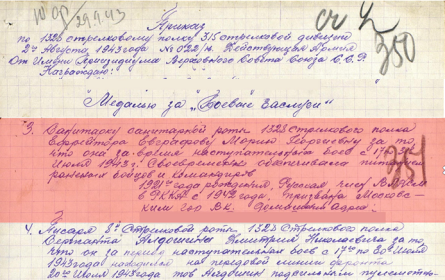 Приказ
по 1328 стрелковому полку 315 стрелковой дивизии
2го Августа 1943 года № 022/н. Действующая Армия
От Имени Президиума Верховного Совета Союза С.С.Р.
Награждаю:
"Медалью за "Боевые Заслуги"
3. Санитарку санитарной роты 1328 Стрелкового полка
Ефрейтора Евграфову Марию Георгиевну за то,
что она за время наступательных боев с 17 по
Июля 1943 г. Своевременно обеспечивала питанием
раненых бойцов и командиров
1921 года рождения, Русская, член ВЛКСМ
в РККА с 1942 года, призвана Московс-
ким РВК. Домашний адрес:
4. Писаря 8й Стрелковой роты 1328 Стрелкового полка
Сержанта Алдошина Дмитрия Николаевича за то,
что он за период наступательных боев с 17го по
1943 года находясь на передовой линии фронта
20го Июля 1943 года тов Алдошин
350
351